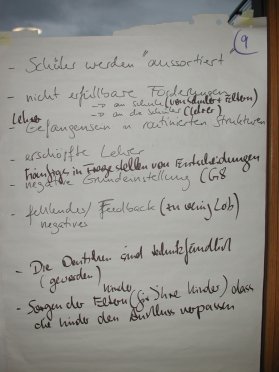 9
- Schüler werden "aussortiert"
- nicht erfüllbare Forderungen
-> an Schule (von Schüler + Eltern)
-> an die Schüler (Lehrer)
Lehrer
- Gefangensein in routinierten Strukturen
- erschöpfte Lehrer
in Frage stellen von Entscheidungen
- negative Grundeinstellung (G8
- fehlendes/ Feedback (zu wenig Lob)
negatives
- Die Deutschen sind
(geworden)
Kinder
- Sorgen der Eltern (für ihre Kinder) dass
die Kinder den Anschluss verpassen